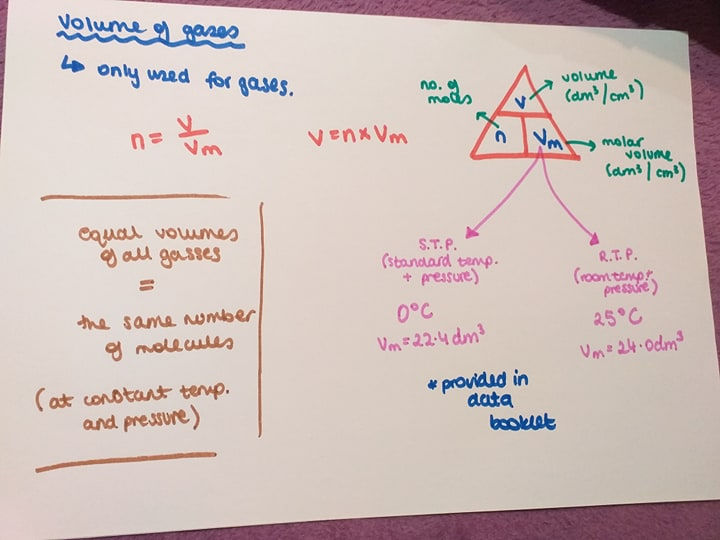 Volume of gases
↳ only used for gases.
n = V/Vm
V = n x Vm
no. of
moles
volume
(dm³/cm³)
V
n
Vm
molar
volume
(dm³/cm³)
equal volumes
of all gasses
=
the same number
of molecules
(at constant temp.
and pressure)
S.T.P.
(standard temp.
+ pressure)
0°C
Vm = 22.4 dm³
R.T.P.
(room temp +
pressure)
25°C
Vm = 24.0dm³
* provided in
data
booklet